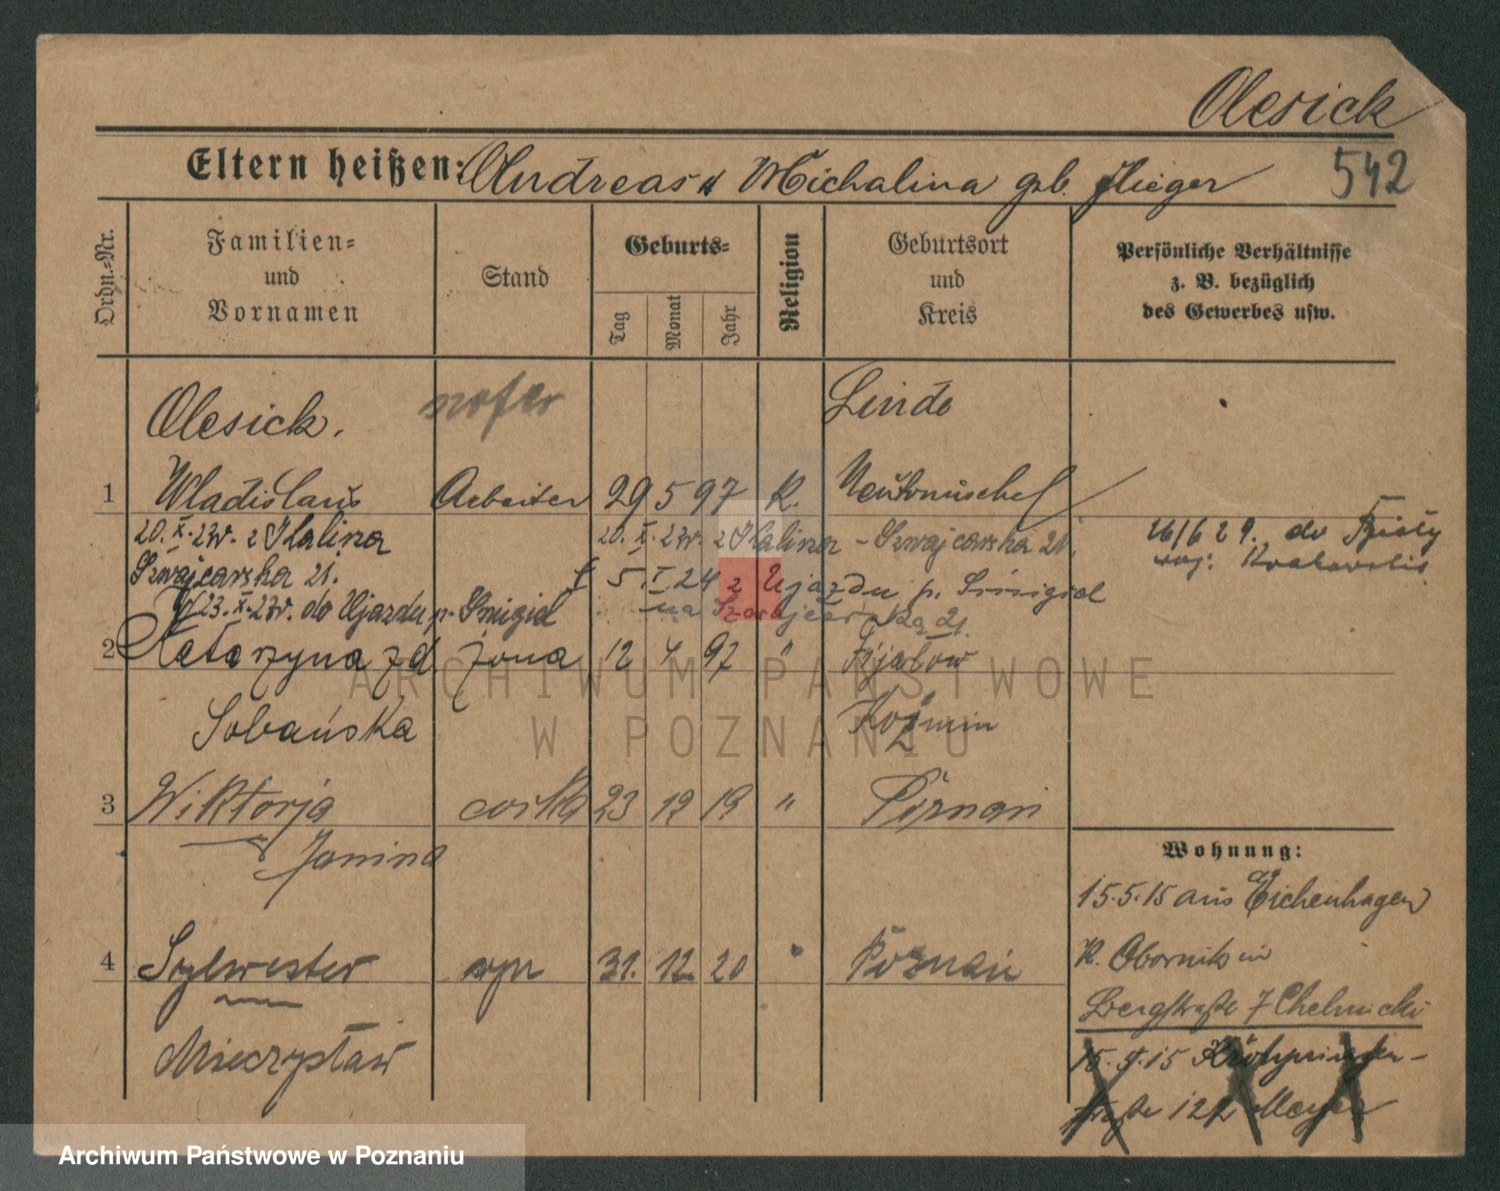 Olesick
Eltern heißen: Andreas u Michalina geb. Flieger 542
Ordn.=Nr.
Familien=
und
Vornamen
Stand
Geburts=
Tag
Monat
Jahr
Religion
Geburtsort
und
Kreis
Persönliche Verhältnisse
z. B. bezüglich
des Gewerbes usw.
Olesick. szofer Linde
1 Wladislaus Arbeiter 29 5 97 K. Neutomischel
20. X. 23r. z Halina 20. X. 23r. z Halina - Szwajcarska 21.
Szwajcarska 21. 5. I 24 z Ujazdu p. Śmigiel
23. X. 23r. do Ujazdu p. Śmigiel na Szwajcarska 21.
26/6 29. do
2 Katarzyna zd żona 12 4 97 "
Sobańska Koźmin
3 Wiktorja córka 23 12 19 " Poznań
Janina
4 Sylwester syn 31. 12 20 Poznań
Mieczysław
Wohnung:
15.5.15 aus Eichenhagen
K. Obornik in
Bergstraße 7 Chelmicki
15. 9. 15 Kronprinzen-
straße 122 Meyer
ARCHIWUM PAŃSTWOWE
W POZNANIU
Archiwum Państwowe w Poznaniu